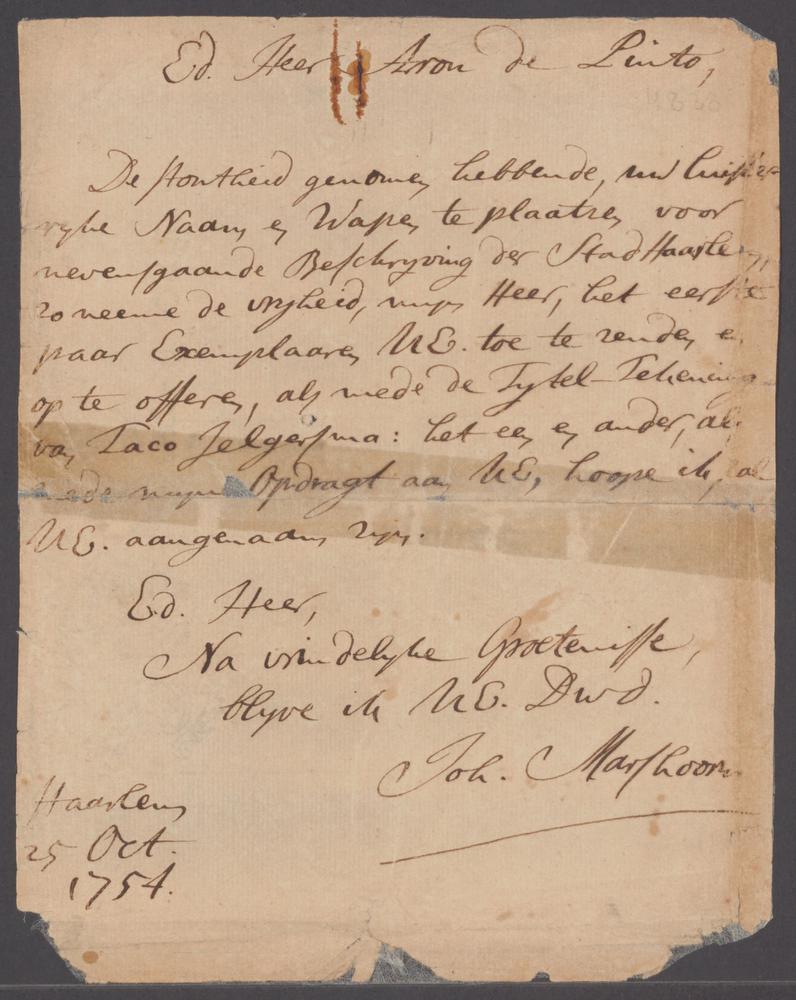 Ed. Heer Aron de Pinto,
De stoutheid genomen hebbende, uw luister
ryke Naam en Wapen te plaatsen voor
nevensgaande Beschryving der Stad Haarlem,
zo neeme de vryheid, myn Heer, het eerste
paar Exemplaaren UE. toe te zenden en
op te offeren, als mede de Tytel-Tekening
van Taco Jelgersma: het een en ander, als
mede myne Opdragt aan UE, hoope ik, zal
UE. aangenaam zyn.
Ed. Heer,
Na vrindelyke Groetenisse,
blyve ik UE. Dwd.
Joh. Marshoorn
Haarlem
25 Oct.
1754.